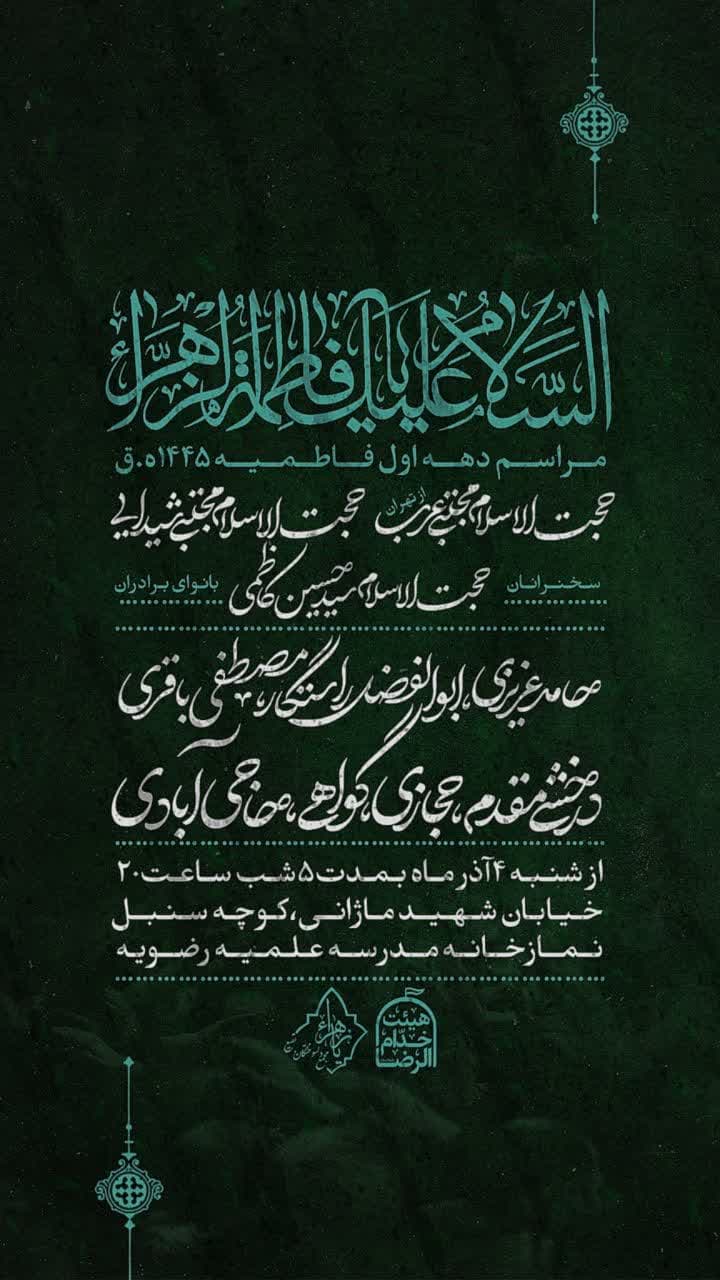 السَّلامُ عَلَیکِ یا فاطِمَةُ الزَّهراء
مراسم دهه اول فاطمیه ۱۴۴۵ه.ق
حجت الاسلام مجتبی عرب از تهران حجت الاسلام مجتبی شیدایی
سخنرانان حجت الاسلام سیدحسین کاظمی بانوای برادران
حامد عزیزی، ابوالفضل راستگار، مصطفی باقری
درخشی مقدم، حجازی، گواهی، حاجی آبادی
از شنبه ۴ آذر ماه بمدت ۵ شب ساعت ۲۰
خیابان شهید ماژانی، کوچه سنبل
نمازخانه مدرسه علمیه رضویه
هیئت
خدّام
الرضا
یا زهرا